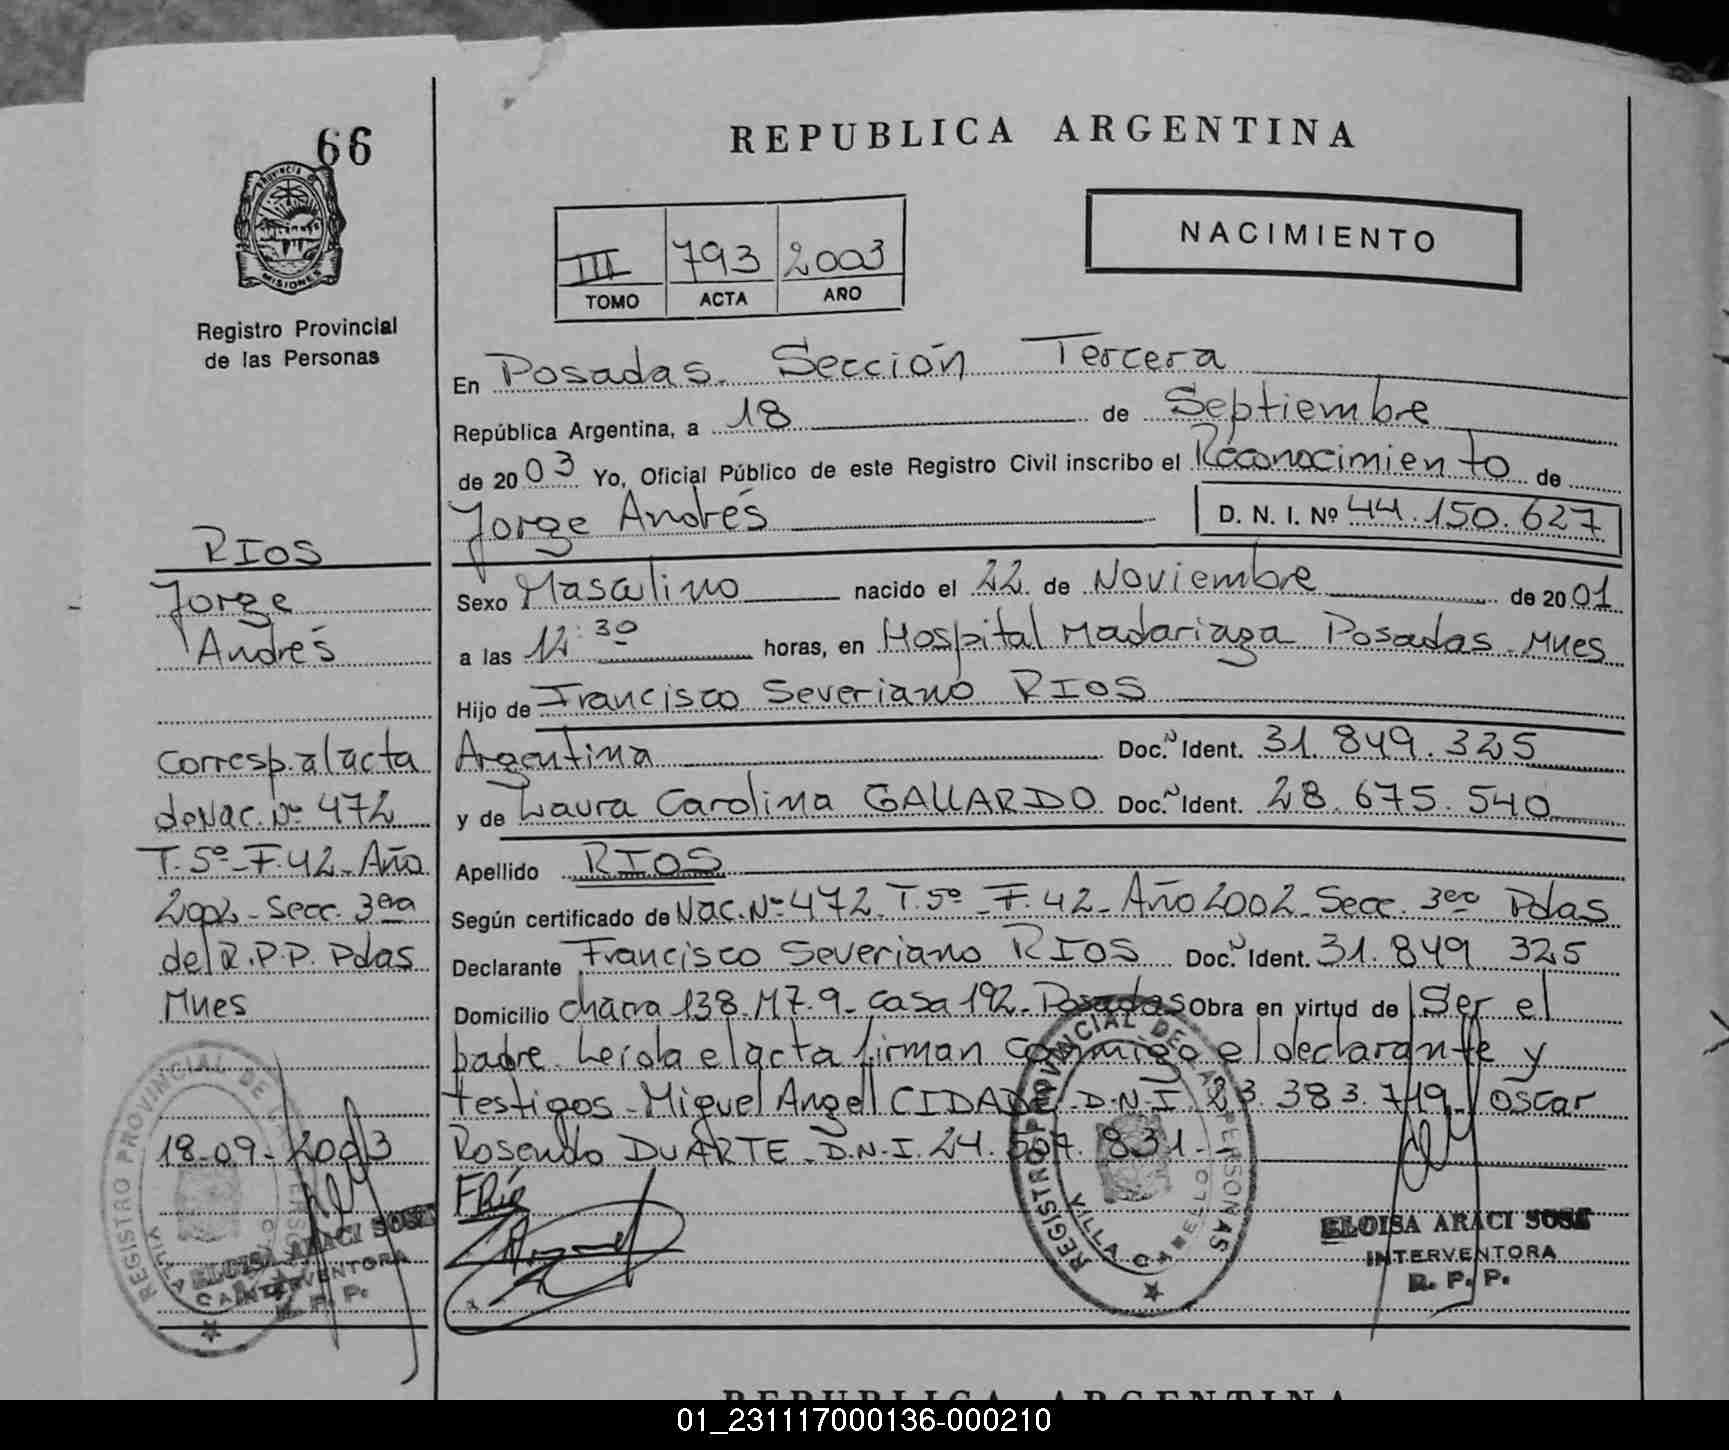 66
REPUBLICA ARGENTINA
Provincia de
MISIONES
Registro Provincial
de las Personas
III 793 2003
TOMO ACTA AÑO
NACIMIENTO
En Posadas. Sección Tercera
República Argentina, a 18 de Septiembre
de 2003 Yo, Oficial Público de este Registro Civil inscribo el Reconocimiento de
Jorge Andrés D. N. I. Nº 44.150.627
Sexo Masculino nacido el 22 de Noviembre de 2001
a las 12:30 horas, en Hospital Madariaga Posadas - Mnes
Hijo de Francisco Severiano RIOS
Argentina Doc. Ident. 31.849.325
y de Laura Carolina GALLARDO Doc. Ident. 28.675.540
Apellido RIOS
Según certificado de Nac. Nº 472 - T. 5º - F. 42 - Año 2002 - Secc. 3era Pdas
Declarante Francisco Severiano RIOS Doc. Ident. 31.849 325
Domicilio chacra 138. MZ. 9 - casa 192 - Posadas Obra en virtud de Ser el
padre. Leída el acta firman conmigo el declarante y
testigos - Miguel Angel CIDADE - D.N.I 23.383.749 - Oscar
Rosendo DUARTE - D.N.I. 24.507.831 -
RIOS
Jorge
Andrés
corresp. al acta
de Nac. Nº 472
T. 5º - F. 42 - Año
2002 - Secc. 3era
del R.P.P. Pdas
Mnes
18-09-2003
REGISTRO PROVINCIAL DE LAS PERSONAS
VILLA CABELLO
ELOISA ARACI SOSA
INTERVENTORA
R. P. P.
REGISTRO PROVINCIAL DE LAS PERSONAS
VILLA CABELLO
ELOISA ARACI SOSA
INTERVENTORA
R. P. P.
REPUBLICA ARGENTINA
01_231117000136-000210